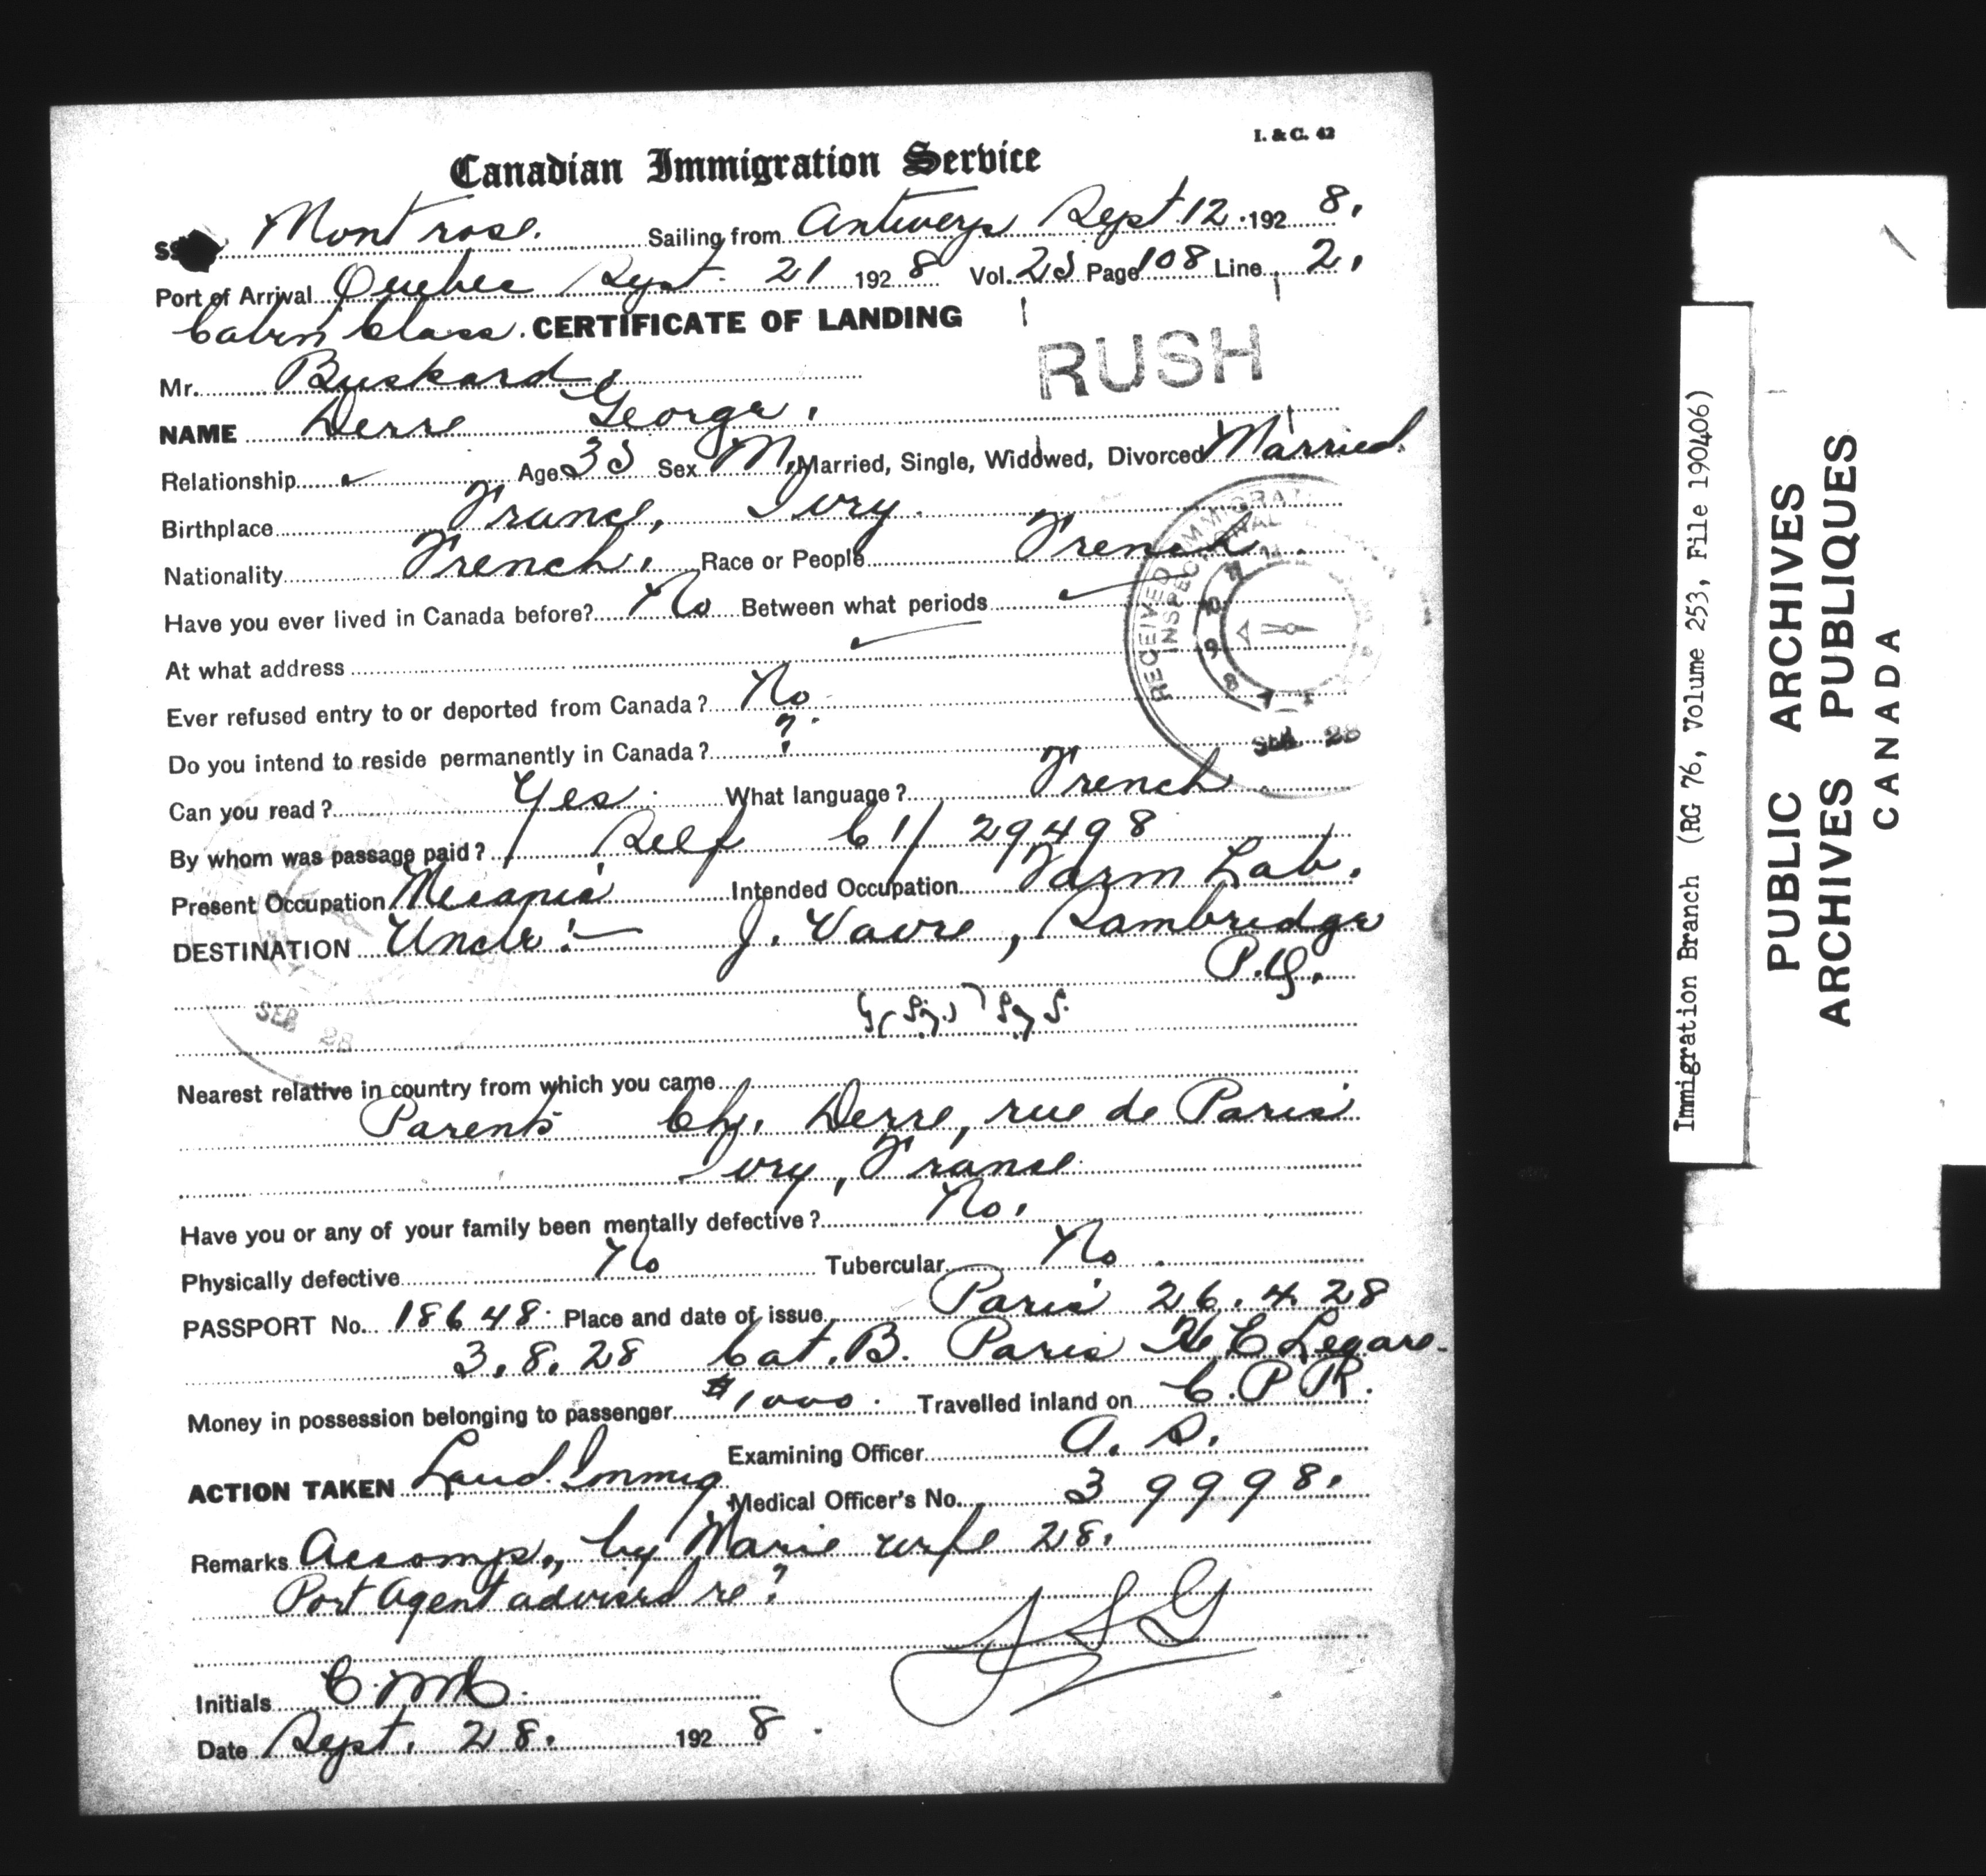 I. & C. 42
Canadian Immigration Service
SS Montrose. Sailing from Antwerp Sept 12. 1928.
Port of Arrival Quebec Sept. 21 1928 Vol. 25 Page 108 Line 2.
Cabin Class. CERTIFICATE OF LANDING
RUSH
Mr. Buskard,
NAME Derre George.
Relationship Age 35 Sex M. Married, Single, Widowed, Divorced Married.
Birthplace France, Ivry.
Nationality French. Race or People French.
Have you ever lived in Canada before? No Between what periods
At what address
Ever refused entry to or deported from Canada? No
Do you intend to reside permanently in Canada? ?
Can you read? Yes. What language? French
By whom was passage paid? Self C1/ 29498
Present Occupation Mecanic Intended Occupation Farm Lab.
DESTINATION Uncle:— J. Vavre, Cambridge
P.Q.
Nearest relative in country from which you came
Parents Ch. Derre, rue de Paris
Ivry, France
Have you or any of your family been mentally defective? No.
Physically defective No Tubercular No
PASSPORT No. 18648. Place and date of issue Paris 26.4.28
3.8.28 Cat. B. Paris Legare.
Money in possession belonging to passenger $1000. Travelled inland on C.P.R.
Examining Officer A. S.
ACTION TAKEN Land. Immig.
Medical Officer's No. 39998.
Remarks Accomp., by Marie wife 28.
Port Agent advised re ?
Initials
Date Sept. 28. 1928.
RECEIVED IMMIGRAT
INSPEC
SEP 28
SEP 28
Immigration Branch (RG 76, Volume 253, File 190406)
PUBLIC ARCHIVES
ARCHIVES PUBLIQUES
CANADA